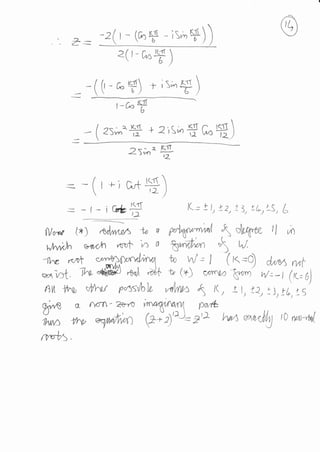 14
∴ z = -2(1 - (Cos kπ/6 - i Sin kπ/6)) / 2(1 - Cos kπ/6)
= -((1 - Cos kπ/6) + i Sin kπ/6) / 1 - Cos kπ/6
= -(2 Sin² kπ/12 + 2 i Sin kπ/12 Cos kπ/12) / 2 Sin² kπ/12
= -(1 + i Cot kπ/12)
= -1 - i Cot kπ/12 K = ±1, ±2, ±3, ±4, ±5, 6
Now (*) reduces to a polynomial of degree 11 in
which each root is a function of W.
The root corresponding to W = 1 (K=0) does not
exist. The only real root to (*) comes from W = -1 (K=6)
All the other possible values of K, ±1, ±2, ±3, ±4, ±5
give a non-zero imaginary part
Thus the equation (z+2)¹² = z¹² has exactly 10 non-real
roots.